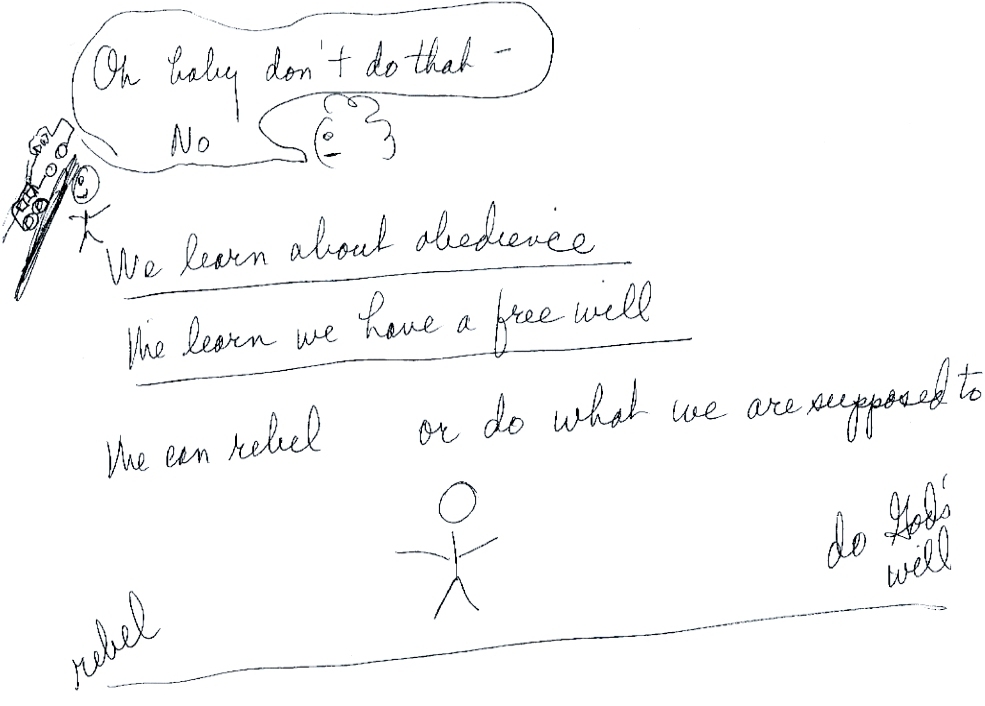 Oh baby don't do that -
No
We learn about obedience
We learn we have a free will
We can rebel or do what we are supposed to
do God's
will
rebel